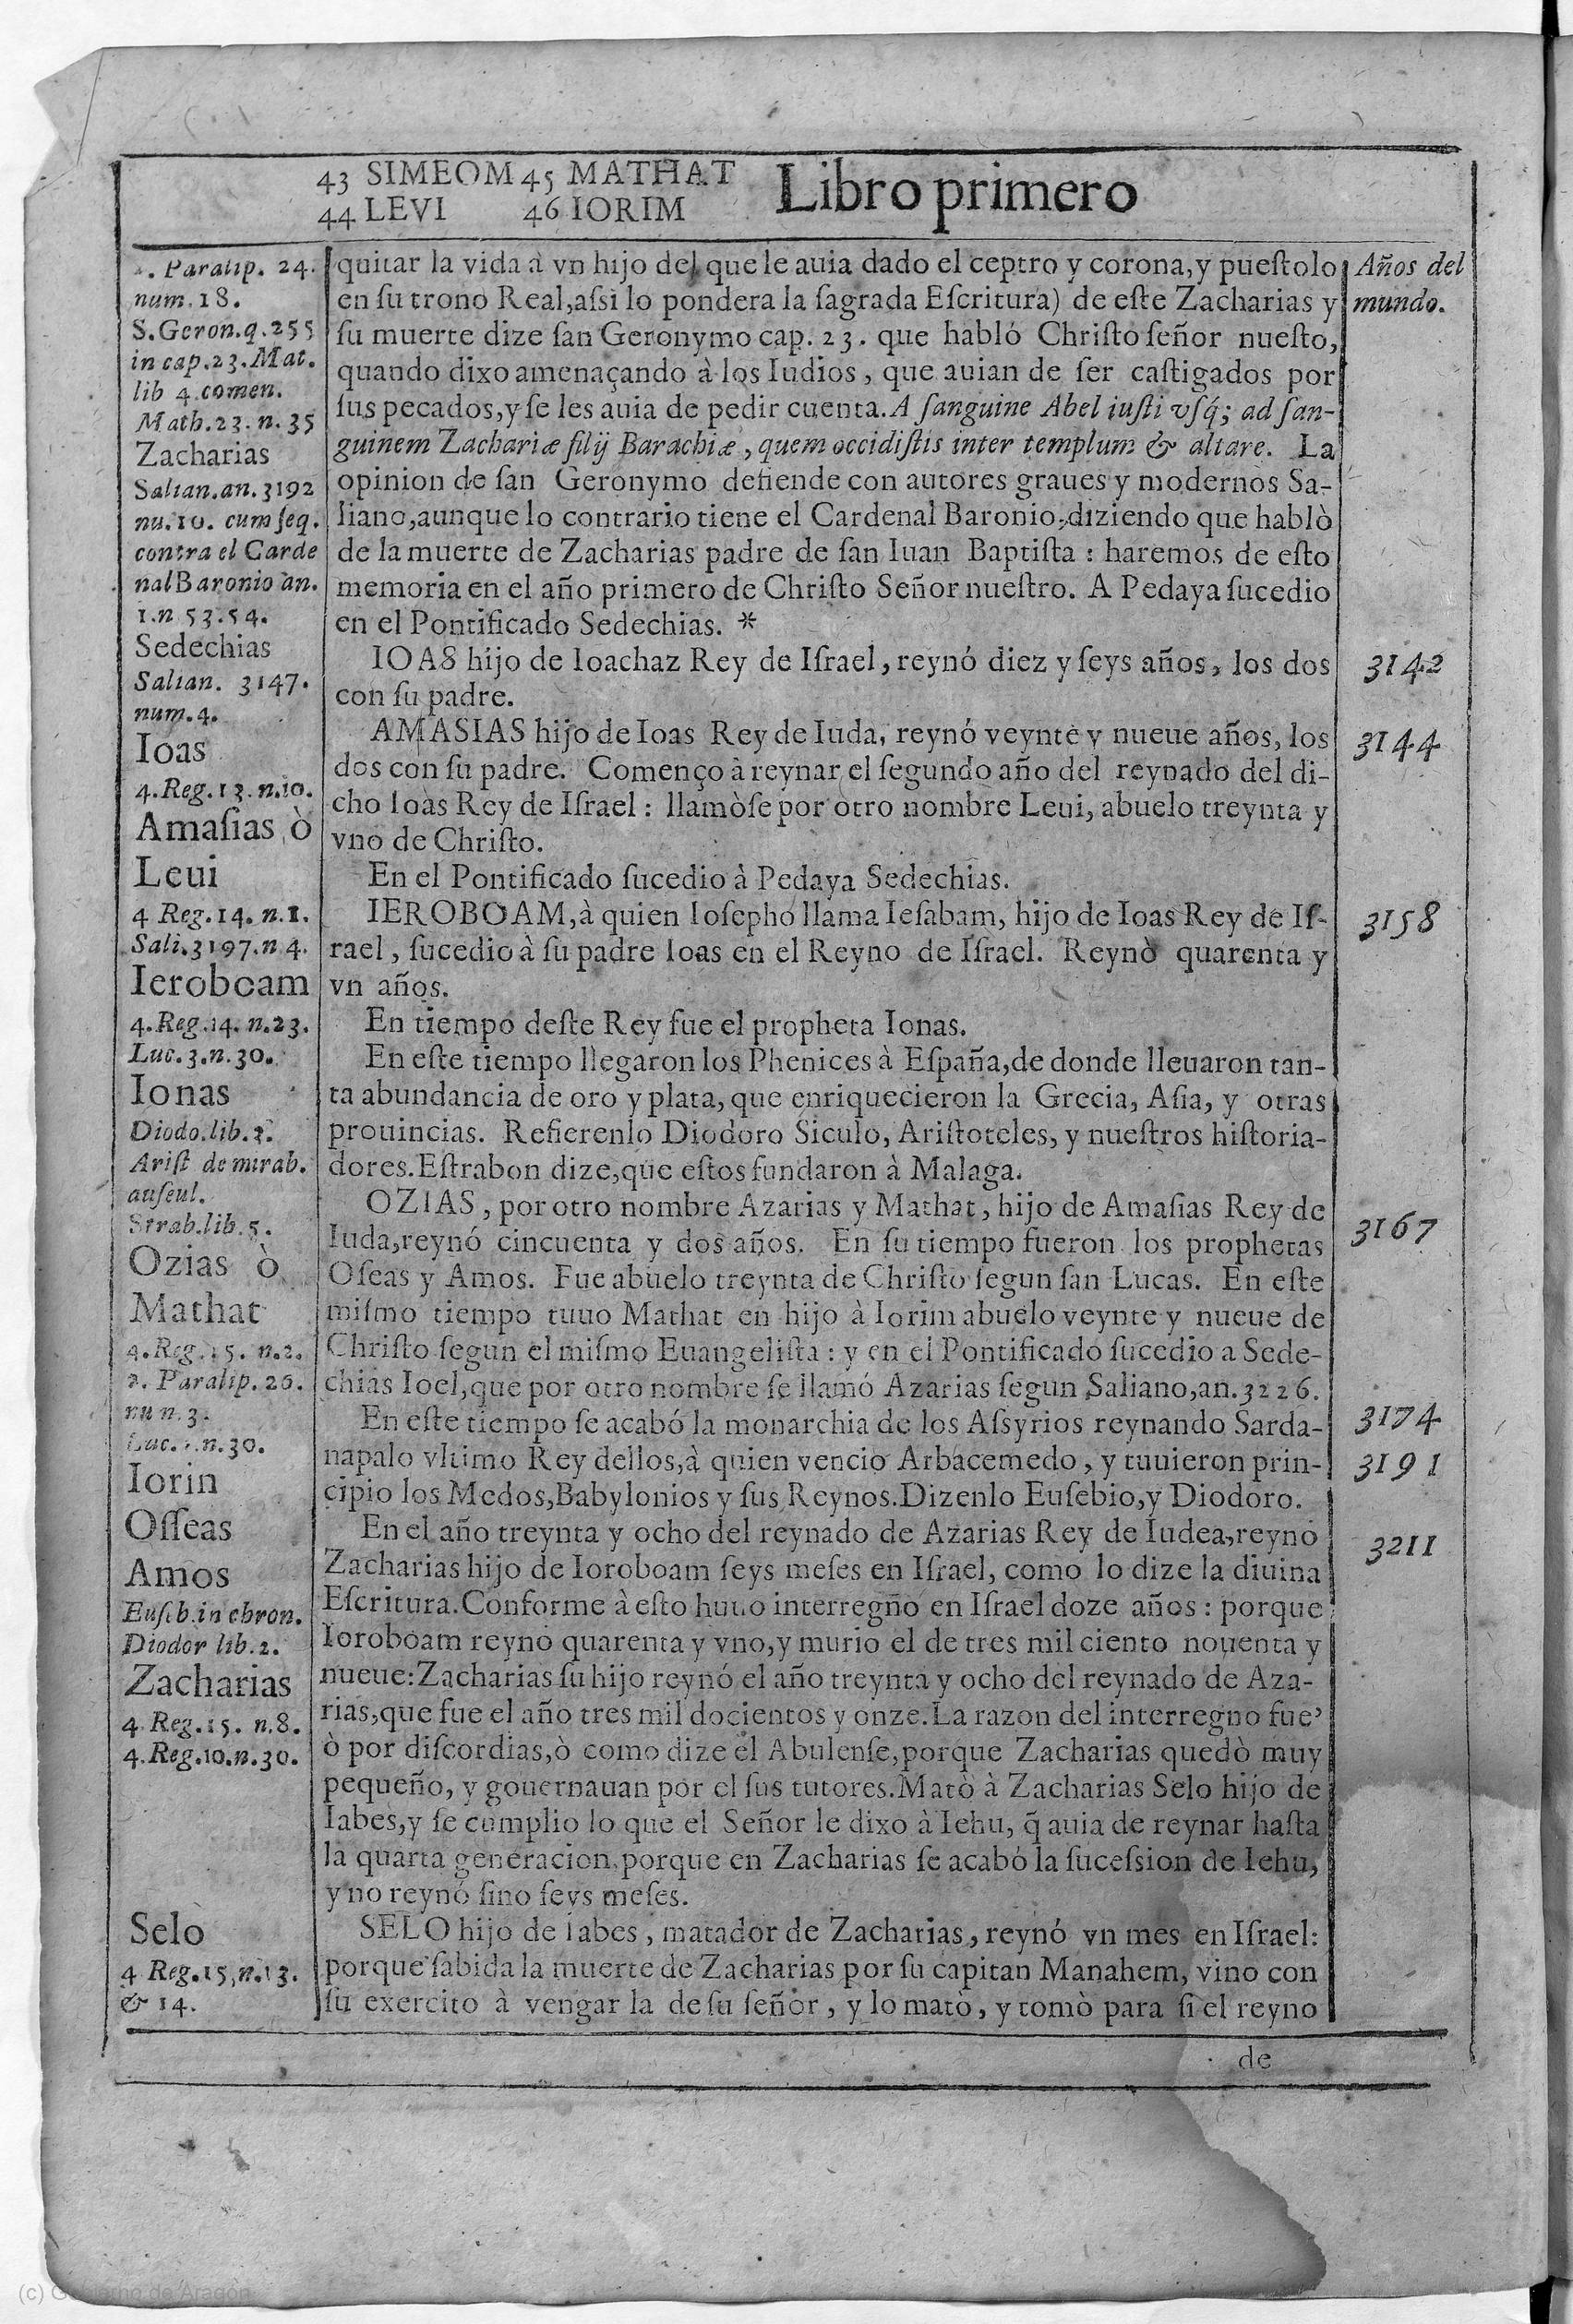 43 SIMEOM 45 MATHAT
44 LEVI 46 IORIM
Libro primero
Paralip. 24.
num. 18.
S. Geron. q. 255
in cap. 23. Mat.
lib 4. comen.
Math. 23. n. 35
Zacharias
Salian. an. 3192
nu. 10. cum ſeq.
contra el Carde
nal Baronio an.
1. n 53. 54.
Sedechias
Salian. 3147.
num. 4.
Ioas
4. Reg. 13. n. 10.
Amaſias ò
Leui
4 Reg. 14. n. 1.
Sali. 3197. n 4.
Ieroboam
4. Reg. 14. n. 23.
Luc. 3. n. 30.
Ionas
Diodo. lib.
Ariſt de mirab.
auſeul.
Strab. lib. 5.
Ozias ò
Mathat
4. Reg. 15. n. 2.
Paralip. 26.
nu n. 3.
Luc. n. 30.
Iorin
Oſſeas
Amos
Euſeb. in chron.
Diodor lib. 2.
Zacharias
4. Reg. 15. n. 8.
4. Reg. 10. n. 30.
Selo
4 Reg. 15, n. 13.
& 14.
quitar la vida à vn hijo del que le auia dado el ceptro y corona, y pueſtolo
en ſu trono Real, aſsi lo pondera la ſagrada Eſcritura) de eſte Zacharias y
ſu muerte dize ſan Geronymo cap. 23. que habló Chriſto ſeñor nueſto,
quando dixo amenaçando à los Iudios, que auian de ſer caſtigados por
ſus pecados, y ſe les auia de pedir cuenta. A ſanguine Abel iuſti vſq́; ad ſan-
guinem Zachariæ filij Barachiæ, quem occidiſtis inter templum & altare. La
opinion de ſan Geronymo defiende con autores graues y modernos Sa-
liano, aunque lo contrario tiene el Cardenal Baronio, diziendo que hablò
de la muerte de Zacharias padre de ſan Iuan Baptiſta: haremos de eſto
memoria en el año primero de Chriſto Señor nueſtro. A Pedaya ſucedio
en el Pontificado Sedechias. *
IOAS hijo de Ioachaz Rey de Iſrael, reynó diez y ſeys años, los dos
con ſu padre.
AMASIAS hijo de Ioas Rey de Iuda, reynó veynte y nueue años, los
dos con ſu padre. Començo à reynar el ſegundo año del reynado del di-
cho Ioas Rey de Iſrael: llamòſe por otro nombre Leui, abuelo treynta y
vno de Chriſto.
En el Pontificado ſucedio à Pedaya Sedechias.
IEROBOAM, à quien Ioſepho llama Ieſabam, hijo de Ioas Rey de Iſ-
rael, ſucedio à ſu padre Ioas en el Reyno de Iſrael. Reynò quarenta y
vn años.
En tiempo deſte Rey fue el propheta Ionas.
En eſte tiempo llegaron los Phenices à Eſpaña, de donde lleuaron tan-
ta abundancia de oro y plata, que enriquecieron la Grecia, Aſia, y otras
prouincias. Refierenlo Diodoro Siculo, Ariſtoteles, y nueſtros hiſtoria-
dores. Eſtrabon dize, que eſtos fundaron à Malaga.
OZIAS, por otro nombre Azarias y Mathat, hijo de Amaſias Rey de
Iuda, reynó cincuenta y dos años. En ſu tiempo fueron los prophetas
Oſeas y Amos. Fue abuelo treynta de Chriſto ſegun ſan Lucas. En eſte
miſmo tiempo tuuo Mathat en hijo à Iorim abuelo veynte y nueue de
Chriſto ſegun el miſmo Euangeliſta: y en el Pontificado ſucedio a Sede-
chias Ioel, que por otro nombre ſe llamó Azarias ſegun Saliano, an. 3226.
En eſte tiempo ſe acabó la monarchia de los Aſsyrios reynando Sarda-
napalo vltimo Rey dellos, à quien vencio Arbacemedo, y tuuieron prin-
cipio los Medos, Babylonios y ſus Reynos. Dizenlo Euſebio, y Diodoro.
En el año treynta y ocho del reynado de Azarias Rey de Iudea, reynó
Zacharias hijo de Ioroboam ſeys meſes en Iſrael, como lo dize la diuina
Eſcritura. Conforme à eſto huuo interregño en Iſrael doze años: porque
Ioroboam reyno quarenta y vno, y murio el de tres mil ciento nouenta y
nueue: Zacharias ſu hijo reynó el año treynta y ocho del reynado de Aza-
rias, que fue el año tres mil docientos y onze. La razon del interregno fue,
ò por diſcordias, ò como dize el Abulenſe, porque Zacharias quedò muy
pequeño, y gouernauan por el ſus tutores. Matò à Zacharias Selo hijo de
Iabes, y ſe cumplio lo que el Señor le dixo à Iehu, q̃ auia de reynar haſta
la quarta generacion, porque en Zacharias ſe acabó la ſuceſsion de Iehu,
y no reynó ſino ſeys meſes.
SELO hijo de Iabes, matador de Zacharias, reynó vn mes en Iſrael:
porque ſabida la muerte de Zacharias por ſu capitan Manahem, vino con
ſu exercito à vengar la de ſu ſeñor, y lo matò, y tomò para ſi el reyno
de
Años del
mundo.
3142
3144
3158
3167
3174
3191
3211
(c) Gobierno de Aragón